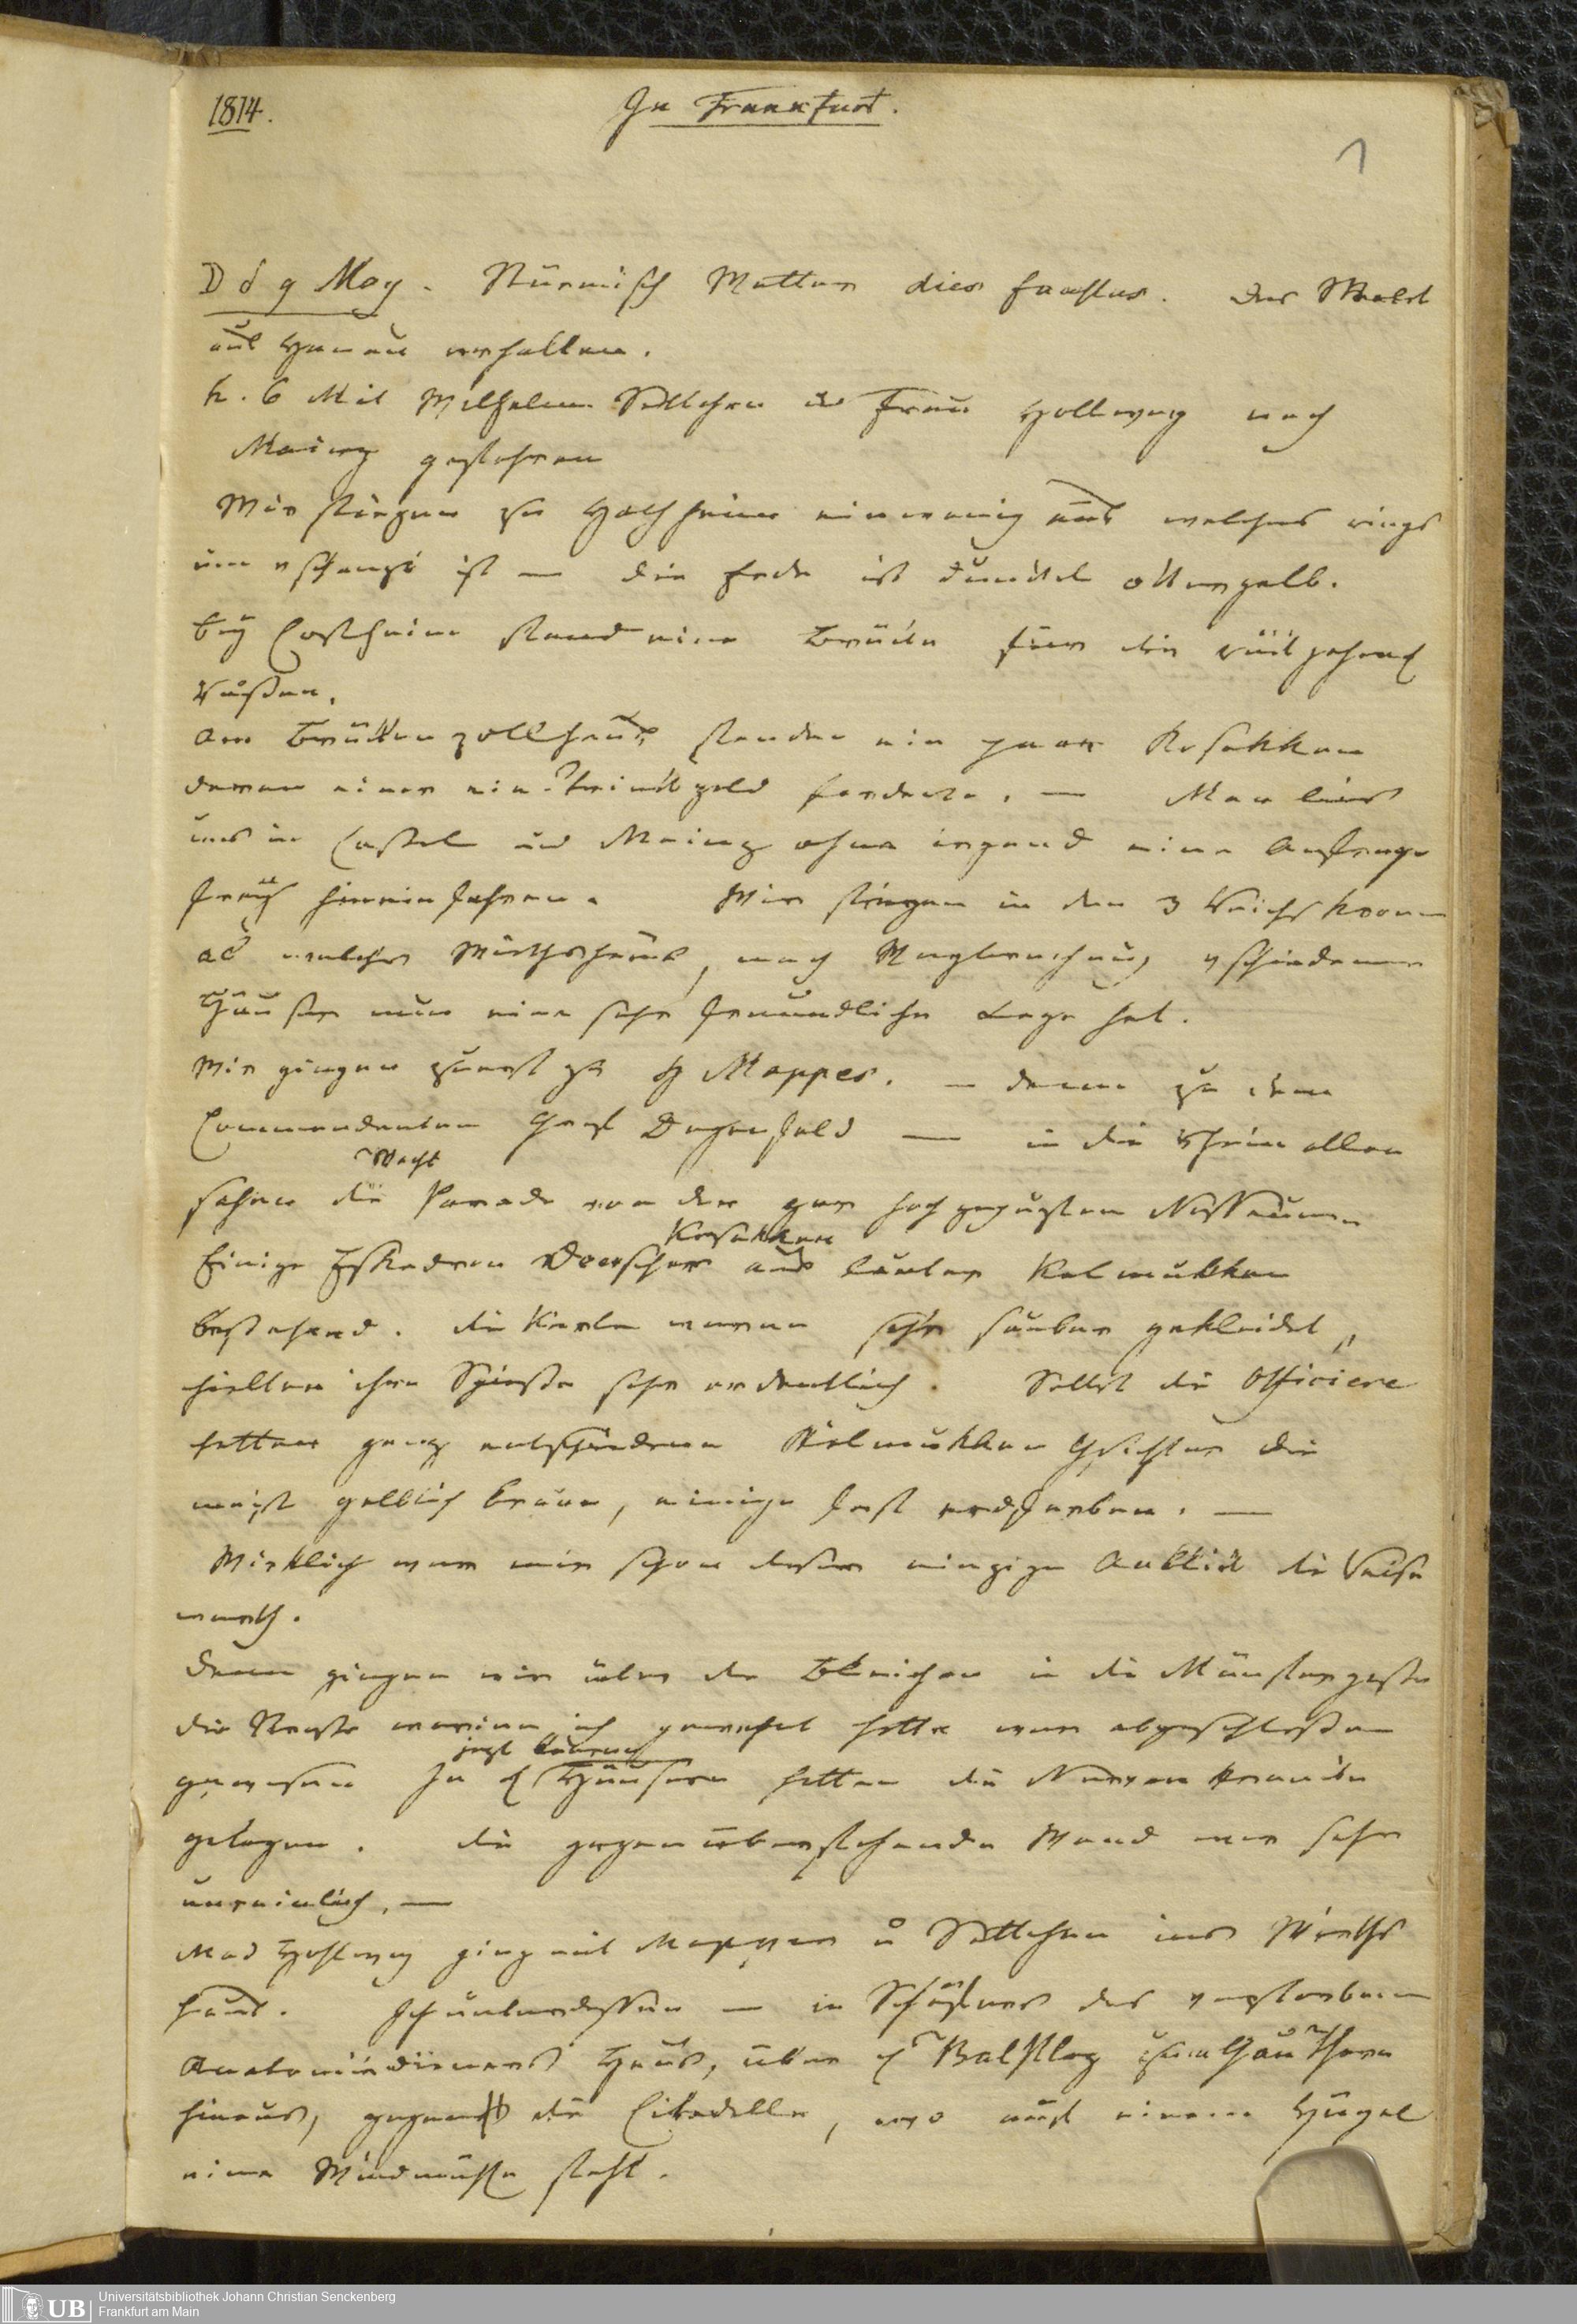 1814.
In Frankfurt.
1
D d 9 May. Stürmisch Wetter dies faustus. Der Wald
aus Hanau erhalten.
h. 6 Mit Wilhelm Settchen u Frau Hollweg nach
Mainz gefahren
Wir stiegen zu Hochheim ein wenig aus welches rings
um verschanzt ist — die Erde ist dunkel okkergelb.
bey Costheim stand eine Brücke für die rückgehend
Russen.
Am Brükkenzollhaus standen ein paar Kosakken
deren einer ein Trinkgeld forderte. — Man liess
uns in Cassel und Mainz ohne irgend eine Anfrage
frey hineinfahren. Wir stiegen in den 3 Reichskronen
ab welches Wirthshaus, nach Wegbrechung verschiedener
Häuser nun eine sehr freundliche Lage hat.
Wir gingen zuerst zu H Mappes. — dann zu dem
Commendanten Graf Degenfeld — in die Rhein allee
Wacht
sahen die Parade von der gar hochgepuzten Nassauern
Kosakken
Einige Eskadron Donscher aus lauter Kalmukken
bestehend. die Kerle waren sehr sauber gekleidet,
hielten ihre Spiesse sehr ordentlich. Selbst die Officiere
hatten ganz entschiedene Kalmukken Gesichter die
meist gelblich braun, einige fast erdfarben. —
Wirklich war mir schon dieser einzige Anblick die Reise
werth.
Dann gingen wir über die Bleichen in die Münstergasse
die Strasse worinn ich gewohnt hatte war abgeschlossen
jezt
gewesen In d Häusern hatten die Nervenkranke
gelegen. die gegenüberstehende Wand war sehr
unreinlich. —
Mad Hollweg ging mit Mappes u Settchen ins Wirths
haus. Ich unterdessen — in des verstorbenen
Anatomiedieners Haus, über d zum Gau Thore
hinaus, gegen die Citadelle, wo auf einem Hügel
eine Windmühle steht.
UB
Universitätsbibliothek Johann Christian Senckenberg
Frankfurt am Main